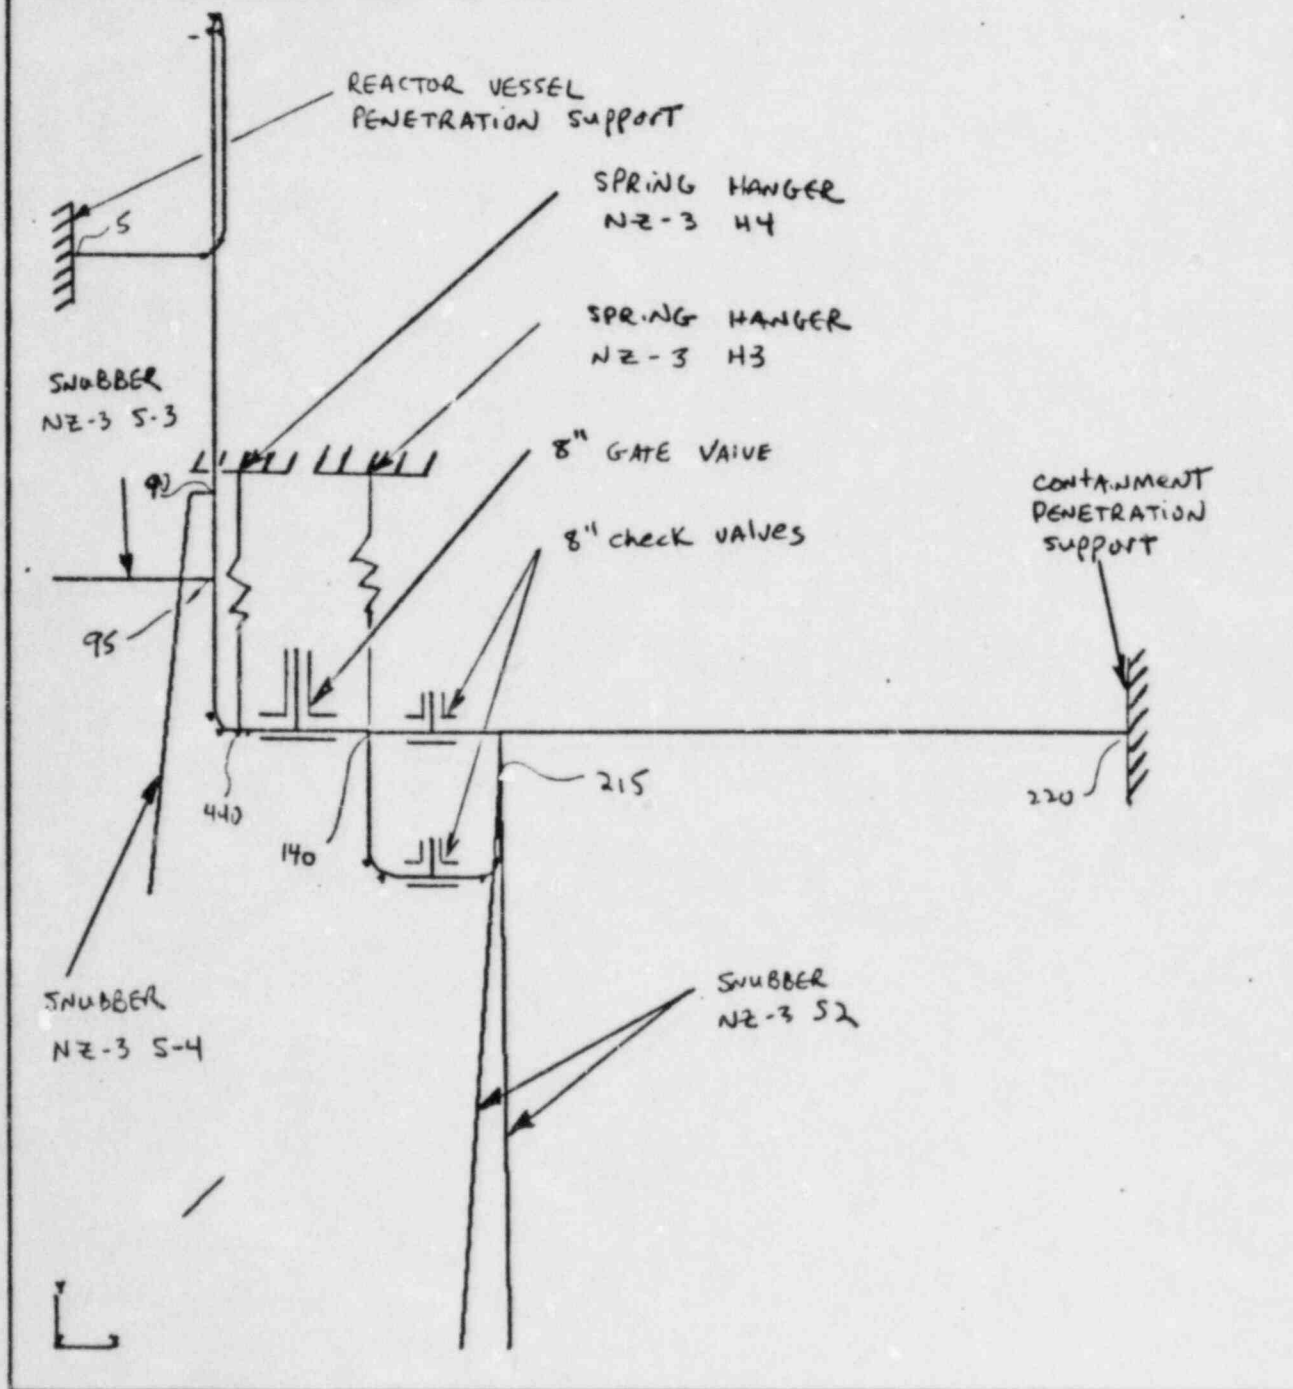 REACTOR VESSEL
PENETRATION SUPPORT
SPRING HANGER
NZ-3 H4
5
SPRING HANGER
NZ-3 H3
SNUBBER
NZ-3 S-3
8" GATE VALVE
90
8" check valves
CONTAINMENT
PENETRATION
SUPPORT
95
215
440
140
220
SNUBBER
NZ-3 S-4
SNUBBER
NZ-3 S2